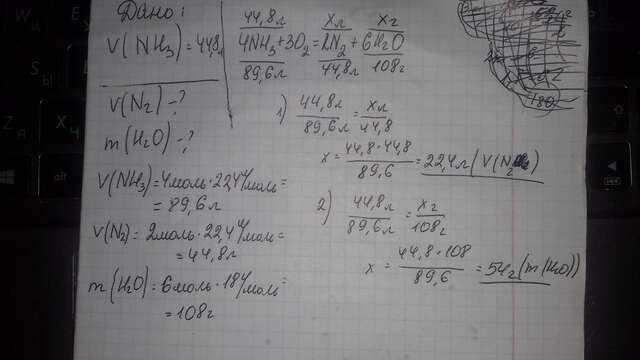 Дано:
V(NH₃)=448л
V(N₂)-?
m(H₂O)-?
V(NH₃)=4моль·22,4л/моль=
=89,6л
V(N₂)=2моль·22,4л/моль=
=44,8л
m(H₂O)=6моль·18г/моль=
=108г
44,8л xл xг
4NH₃+3O₂=2N₂+6H₂O
89,6л 44,8л 108г
1) 44,8л/89,6л=xл/44,8
x=44,8·44,8/89,6=22,4л(V(N₂))
2) 44,8л/89,6л=xг/108г
x=44,8·108/89,6=54г(m(H₂O))